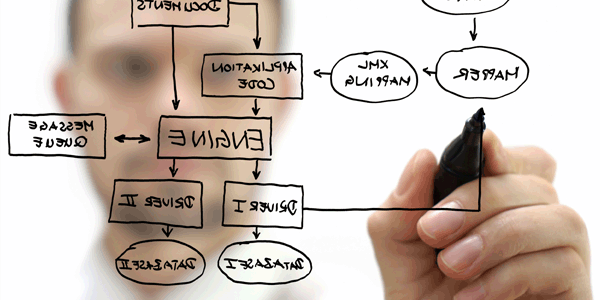 DOCUMENTS
APPLIKATION
CODE
XML
MAPPING
MAPPER
MESSAGE
QUEUE
ENGINE
DRIVER II
DRIVER I
DATABASE II
DATABASE I